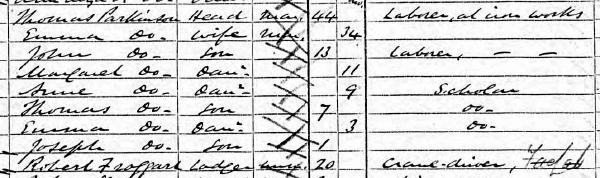 Thomas Parkinson Head mar. 44 Laborer, at iron works
Emma Do- Wife mar. 34
John Do- Son 13 Laborer, - -
Margaret Do- Daur- 11
Anne Do- Daur- 9 Scholar
Thomas Do- Son 7 Do-
Emma Do- Daur- 3 Do-
Joseph Do- Son 1
Robert Lodger unm. 20 Crane-driver,